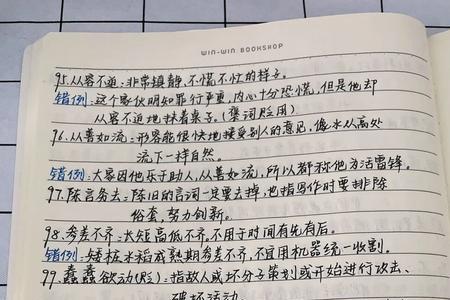 WIN-WIN BOOKSHOP
95.从容不迫:非常镇静,不慌不忙的样子。
错例:这个家伙明知罪行严重,内心十分恐慌,但是他却
从容不迫地抹着桌子。(褒词贬用)
96.从善如流:形容能很快地接受别人的意见,像水从高处
流下一样自然。
错例:大家因他乐于助人,从善如流,所以都称他为活雷锋。
97.陈言务去:陈旧的言词一定要去掉,也指写作时要排除
俗套,努力创新。
98.参差不齐:长短高低不齐。不用于时间有先有后。
错例:矮桩水稻成熟期参差不齐,不宜用机器统一收割。
99.蠢蠢欲动(贬):指敌人或坏分子策划或开始进行攻击、
破坏活动。